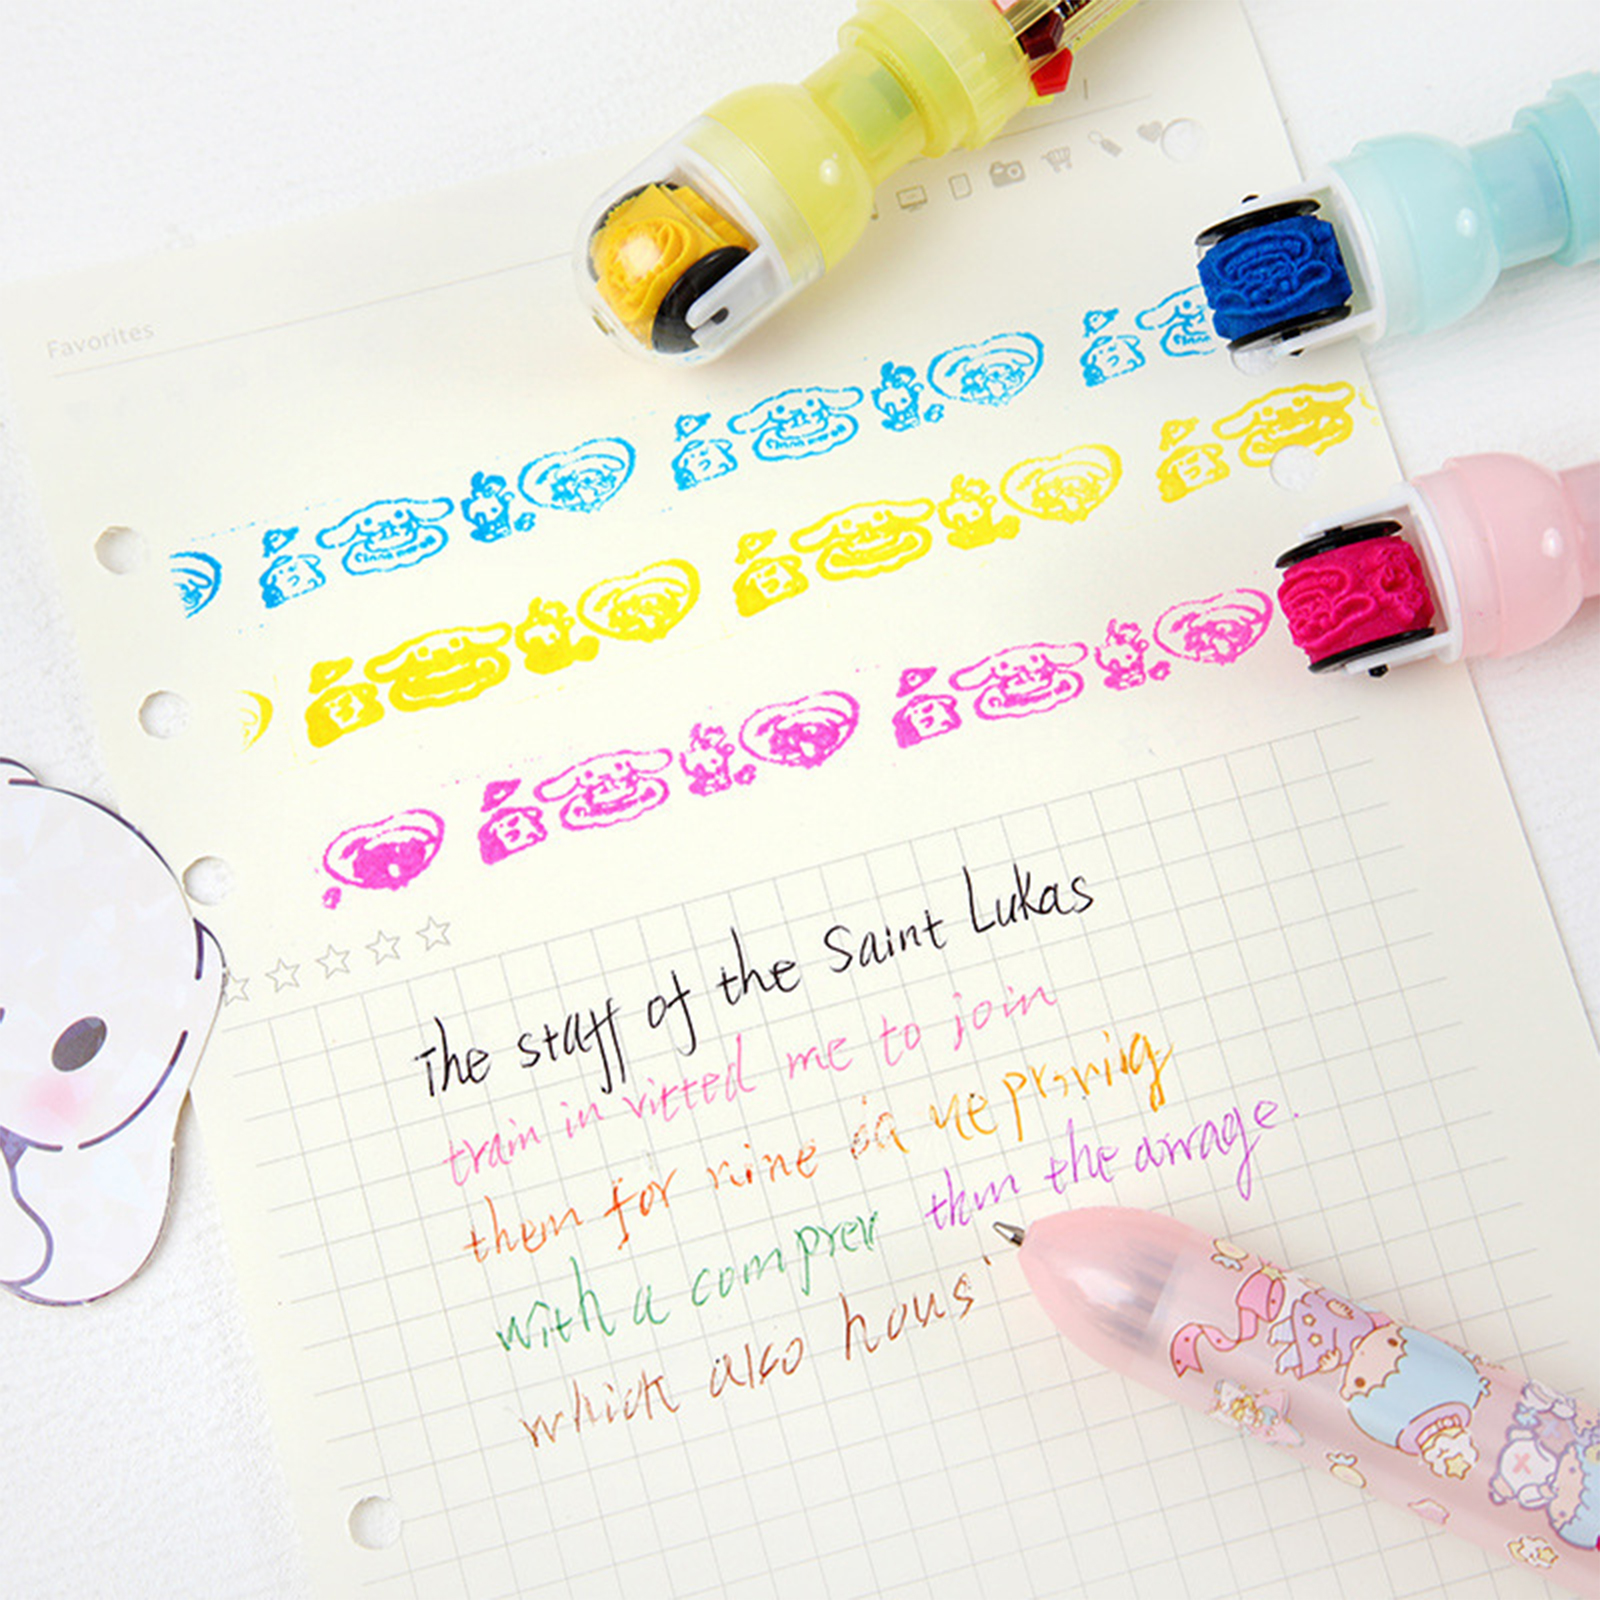 Favorites
The staff of the Saint Lukas
train in vitted me to join
them for nine
with a comprev then the
which also hous'